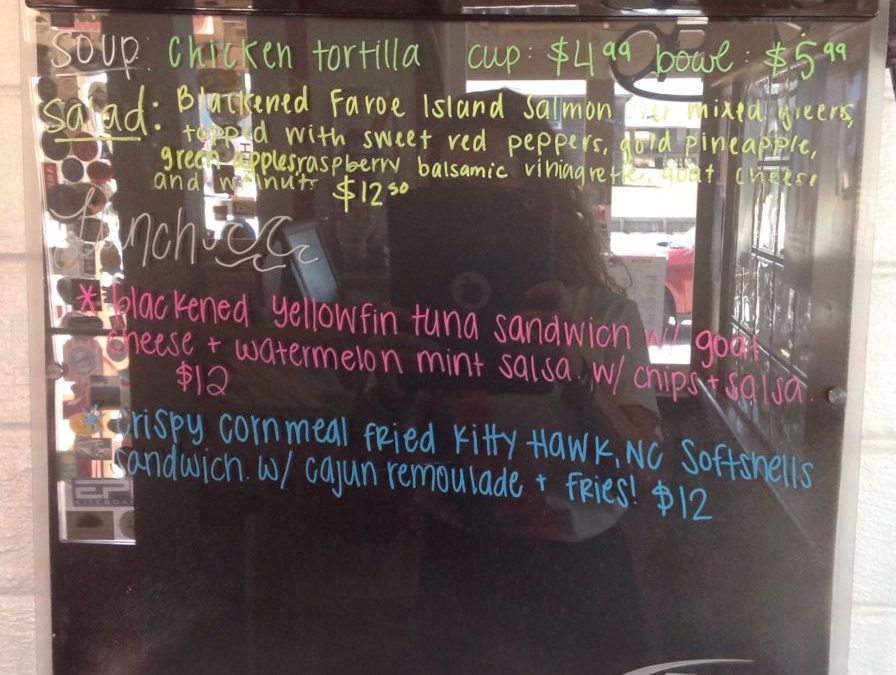 Soup: Chicken tortilla cup: $4.99 bowl: $5.99
Salad: Blackened Faroe Island Salmon over mixed greens,
topped with sweet red peppers, gold pineapple,
green apples, raspberry balsamic viniagrette, goat cheese
and walnuts $12.50
Lunch
* blackened yellowfin tuna sandwich w/ goat
cheese + watermelon mint salsa. w/ chips + salsa.
$12
* crispy cornmeal fried Kitty Hawk, NC Softshells
sandwich. w/ cajun remoulade + fries! $12